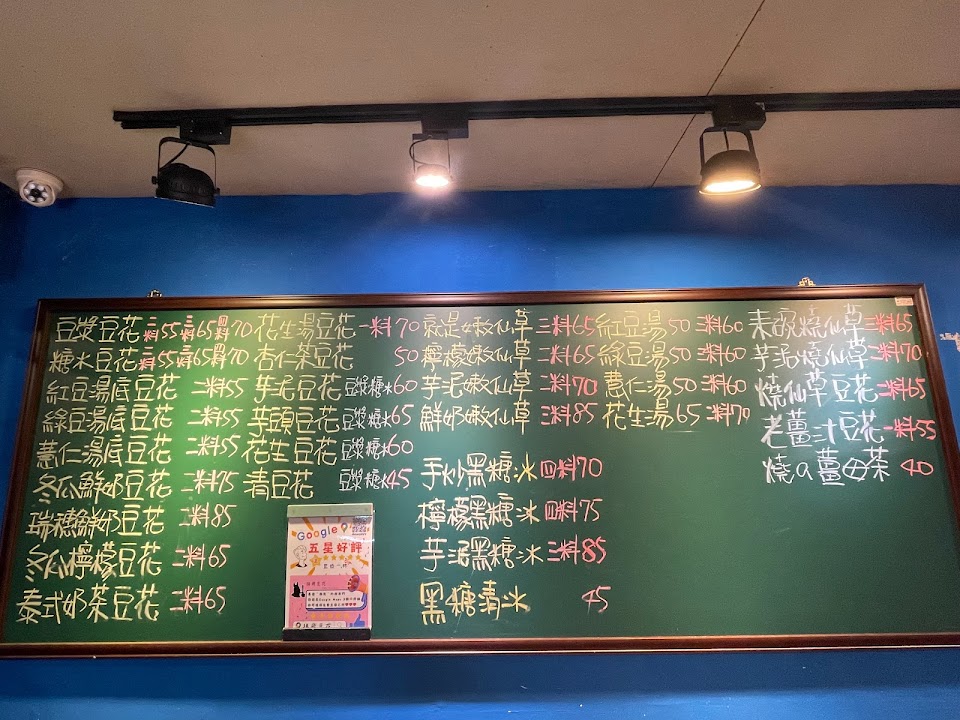 豆漿豆花 二料55 三料65 四料70
糖水豆花 二料55 三料65 四料70
紅豆湯底豆花 二料55
綠豆湯底豆花 二料55
薏仁湯底豆花 二料55
冬瓜鮮奶豆花 二料75
瑞穗鮮奶豆花 二料85
冬瓜檸檬豆花 二料65
泰式奶茶豆花 二料65
花生湯豆花 一料70
杏仁茶豆花 50
芋泥豆花 豆漿糖水60
芋頭豆花 豆漿糖水65
花生豆花 豆漿糖水60
清豆花 豆漿糖水45
就是嫩仙草 三料65
檸檬嫩仙草 二料65
芋泥嫩仙草 二料70
鮮奶嫩仙草 三料85
手炒黑糖冰 四料70
檸檬黑糖冰 四料75
芋泥黑糖冰 三料85
黑糖清冰 45
紅豆湯50 二料60
綠豆湯50 二料60
薏仁湯50 二料60
花生湯65 二料70
芋泥燒仙草 二料70
燒仙草豆花 二料65
老薑汁豆花 一料55
燒の薑母茶 40
Google
五星好評